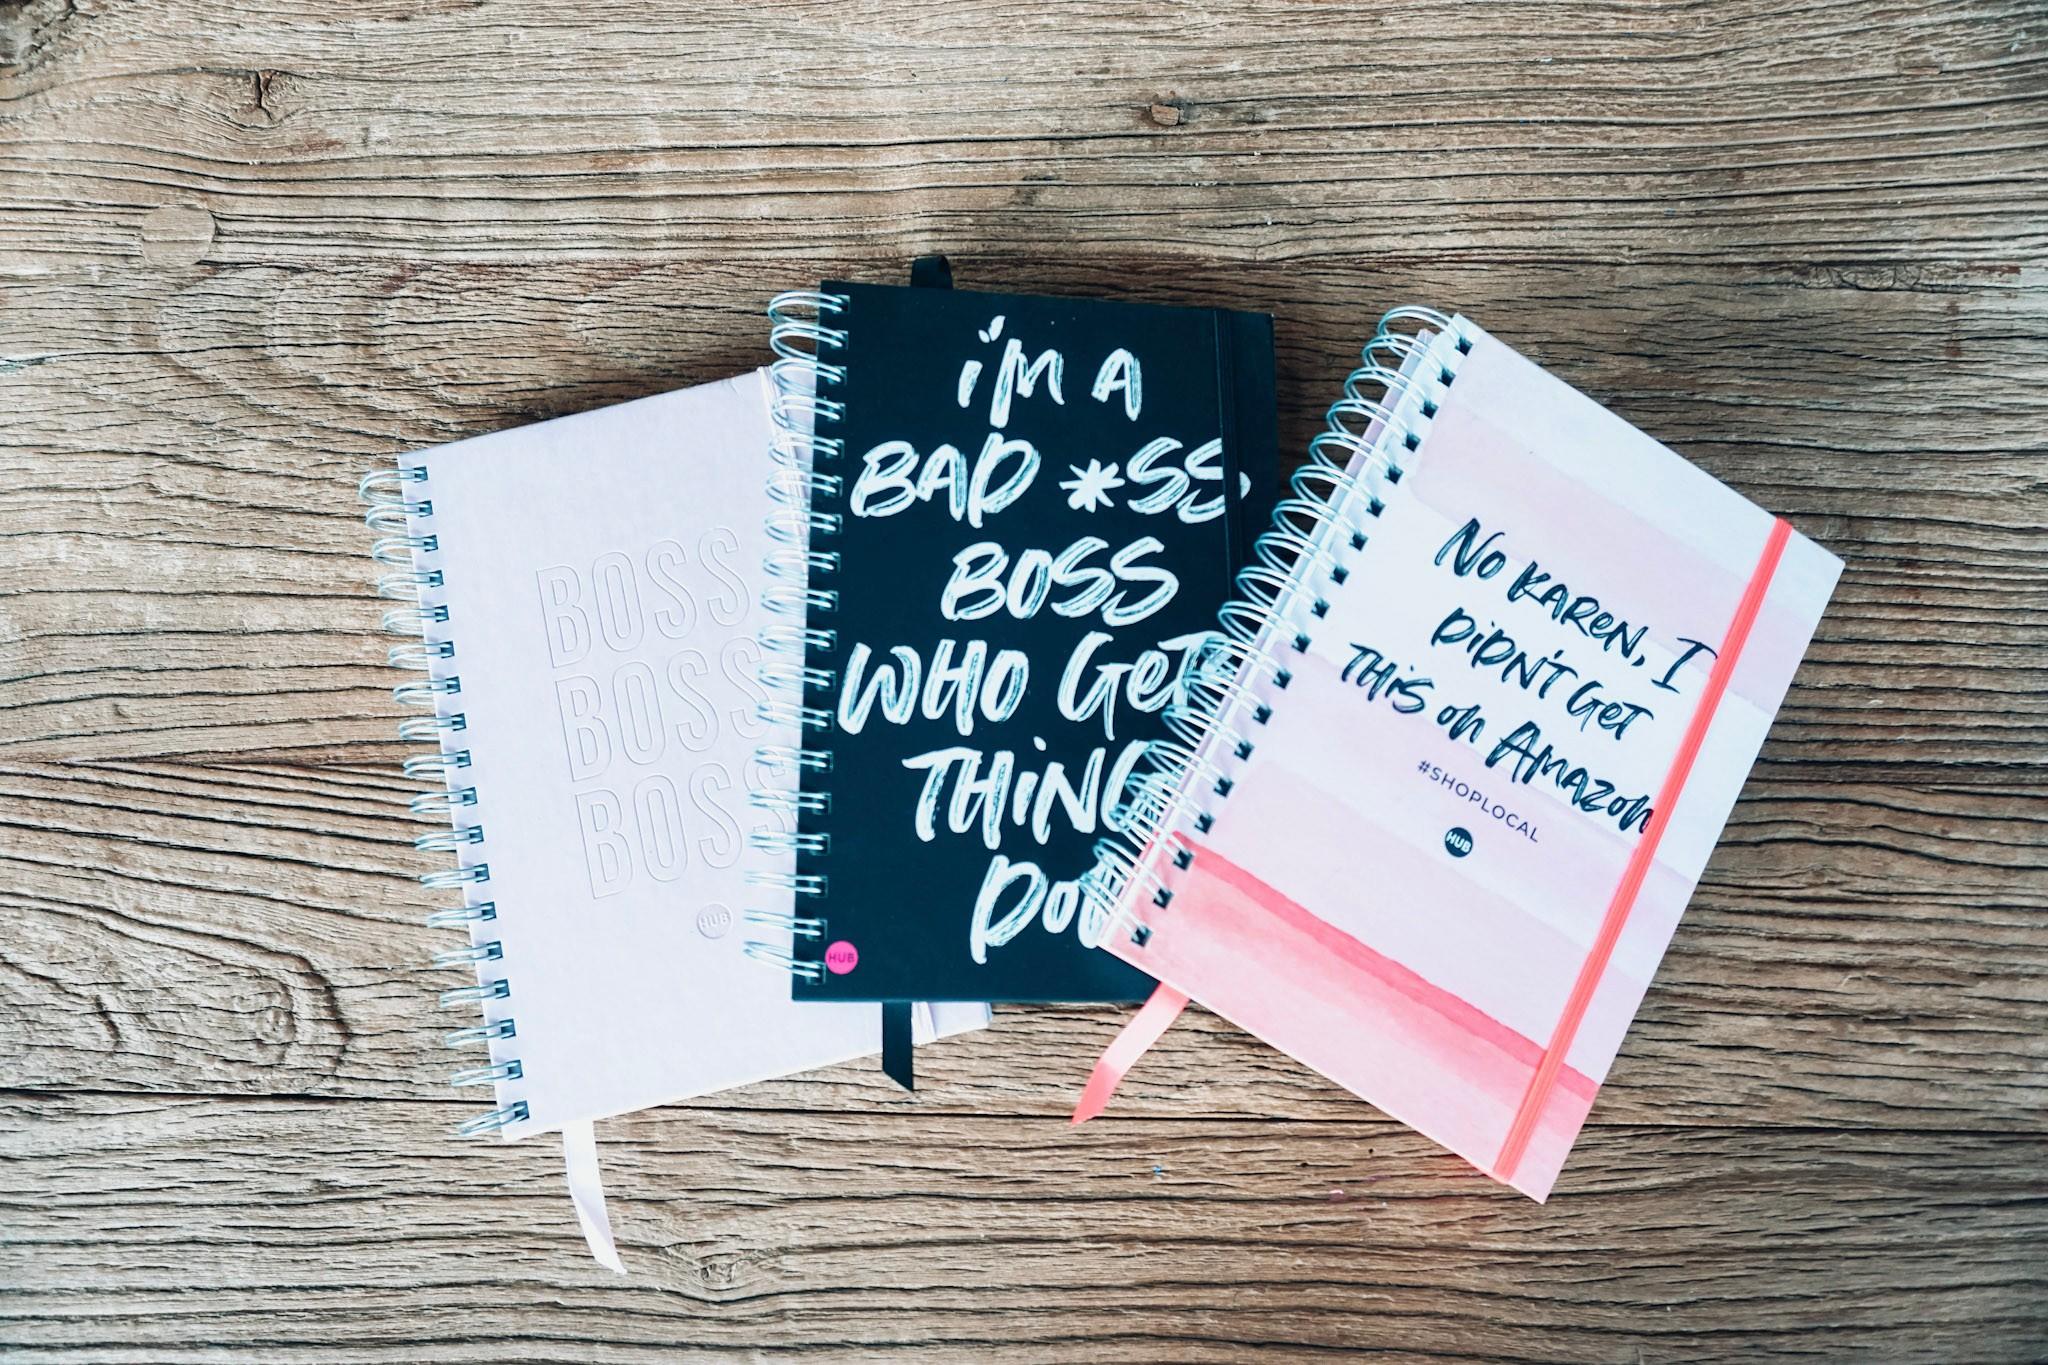 BOSS
BOSS
BOSS
HUB
i'm A
BAD *SS
BOSS
WHO GeT
THiNG
Do
HUB
No KAReN, I
DiDN'T GeT
THiS on AmAZon
#SHOPLOCAL
HUB